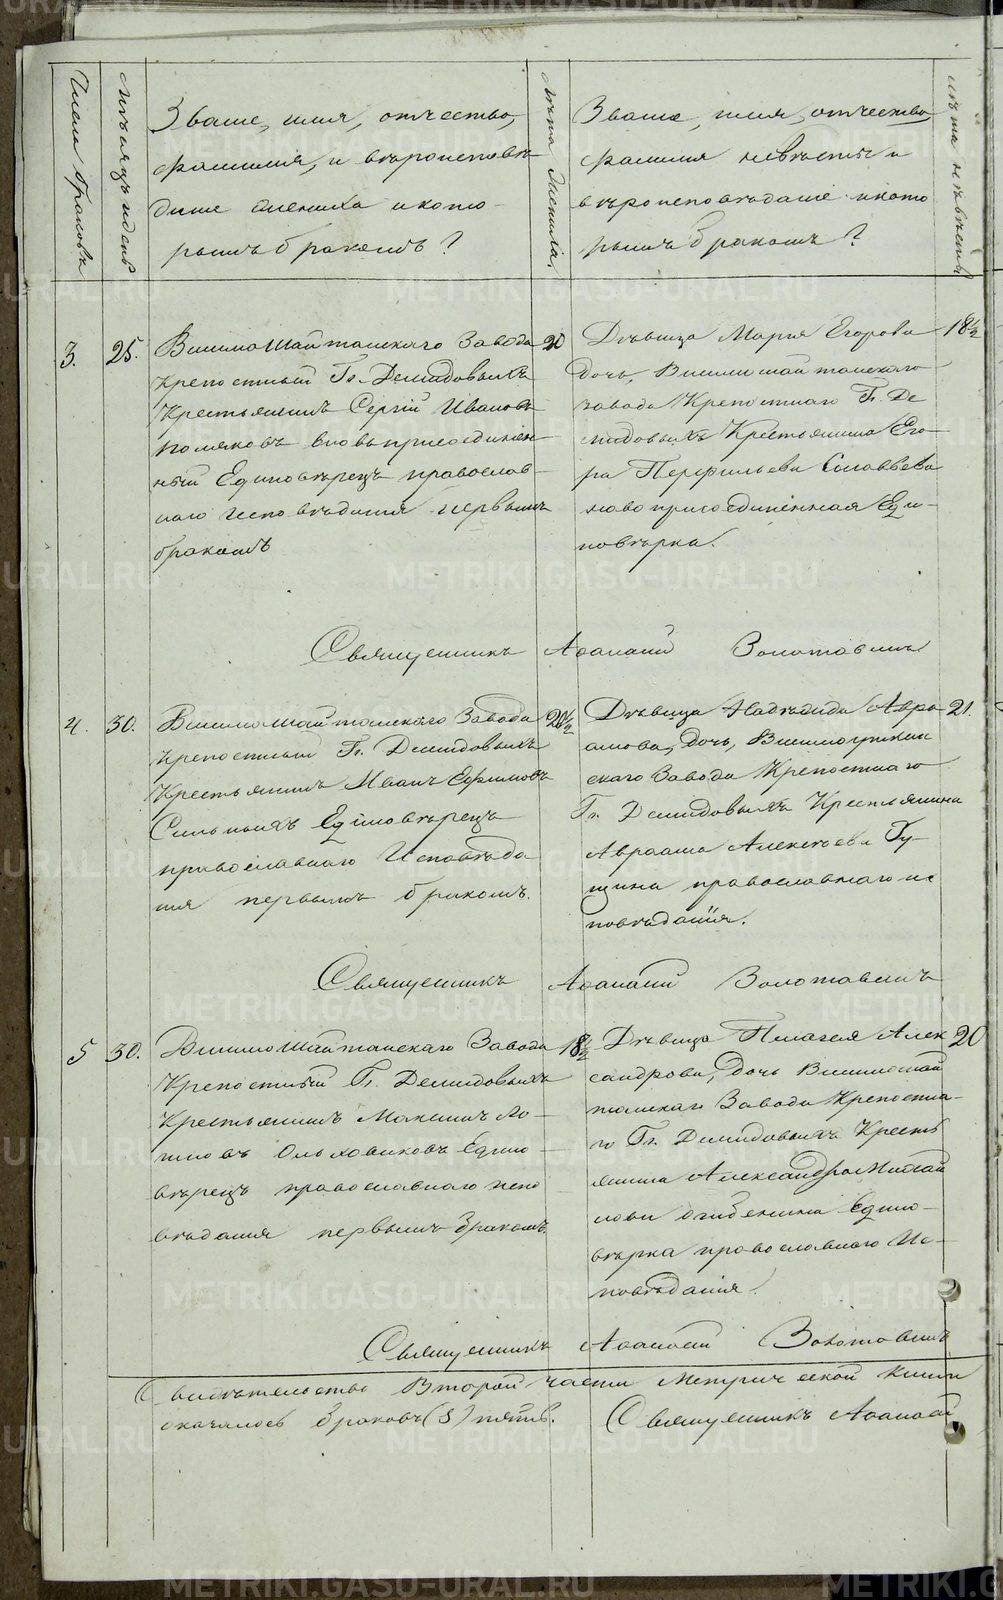 Число браковъ
Мѣсяцъ и день
Званіе, имя, отчество,
фамилія, и вѣроисповѣ
даніе жениха и кото-
рымъ бракомъ?
Лѣта жениха.
Званіе, имя, отчество
фамилія невѣсты и
вѣроисповѣданіе и кото
рымъ бракомъ?
Лѣта невѣсты
3.
25.
Висимошайтанскаго Завода
крепостный Гг. Демидовыхъ
Крестьянинъ Сергій Ивановъ
Поляковъ вновьприсоединен-
ный Единовѣрецъ православ-
наго исповѣданія первымъ
бракомъ
20
Дѣвица Марія Егорова
дочь, Висимошайтанскаго
завода Крепостнаго Гг. Де
мидовыхъ Крестьянина Его-
ра Перфильева Соловьева
новоприсоединенная Еди-
новѣрка.
18½
Священникъ Аѳанасій Золотавинъ
4.
30.
Висимошайтанскаго Завода
крепостный Гг. Демидовыхъ
Крестьянинъ Иванъ Ефимовъ
Сильныхъ Единовѣрецъ
православнаго Исповѣда
нія первымъ бракомъ.
20½
Дѣвица Надѣжда Авра
амова, дочь, Висимоуткин
скаго Завода Крепостнаго
Гг. Демидовыхъ Крестьянина
Авраама Алексѣева Гу-
щина православнаго ис
повѣданія.
21.
Священникъ Аѳанасій Золотавинъ
5
30.
Висимошайтанскаго Завода
Крепостный Гг. Демидовыхъ
Крестьянинъ Максимъ Ло-
гиновъ Ольховиковъ Едино-
вѣрецъ православнаго испо
вѣданія первымъ бракомъ.
18½
Дѣвица Пелагея Алек
сандрова, дочь Висимошай
танскаго Завода Крепостна-
го Гг. Демидовыхъ Кресть
янина Александра Михай
лова Едино-
вѣрка православнаго Ис-
повѣданія.
20
Священникъ Аѳанасій Золотавинъ
Свидѣтельство Второй части Метрической книги
оказалось браковъ (5) пять. Священникъ Аѳанасій